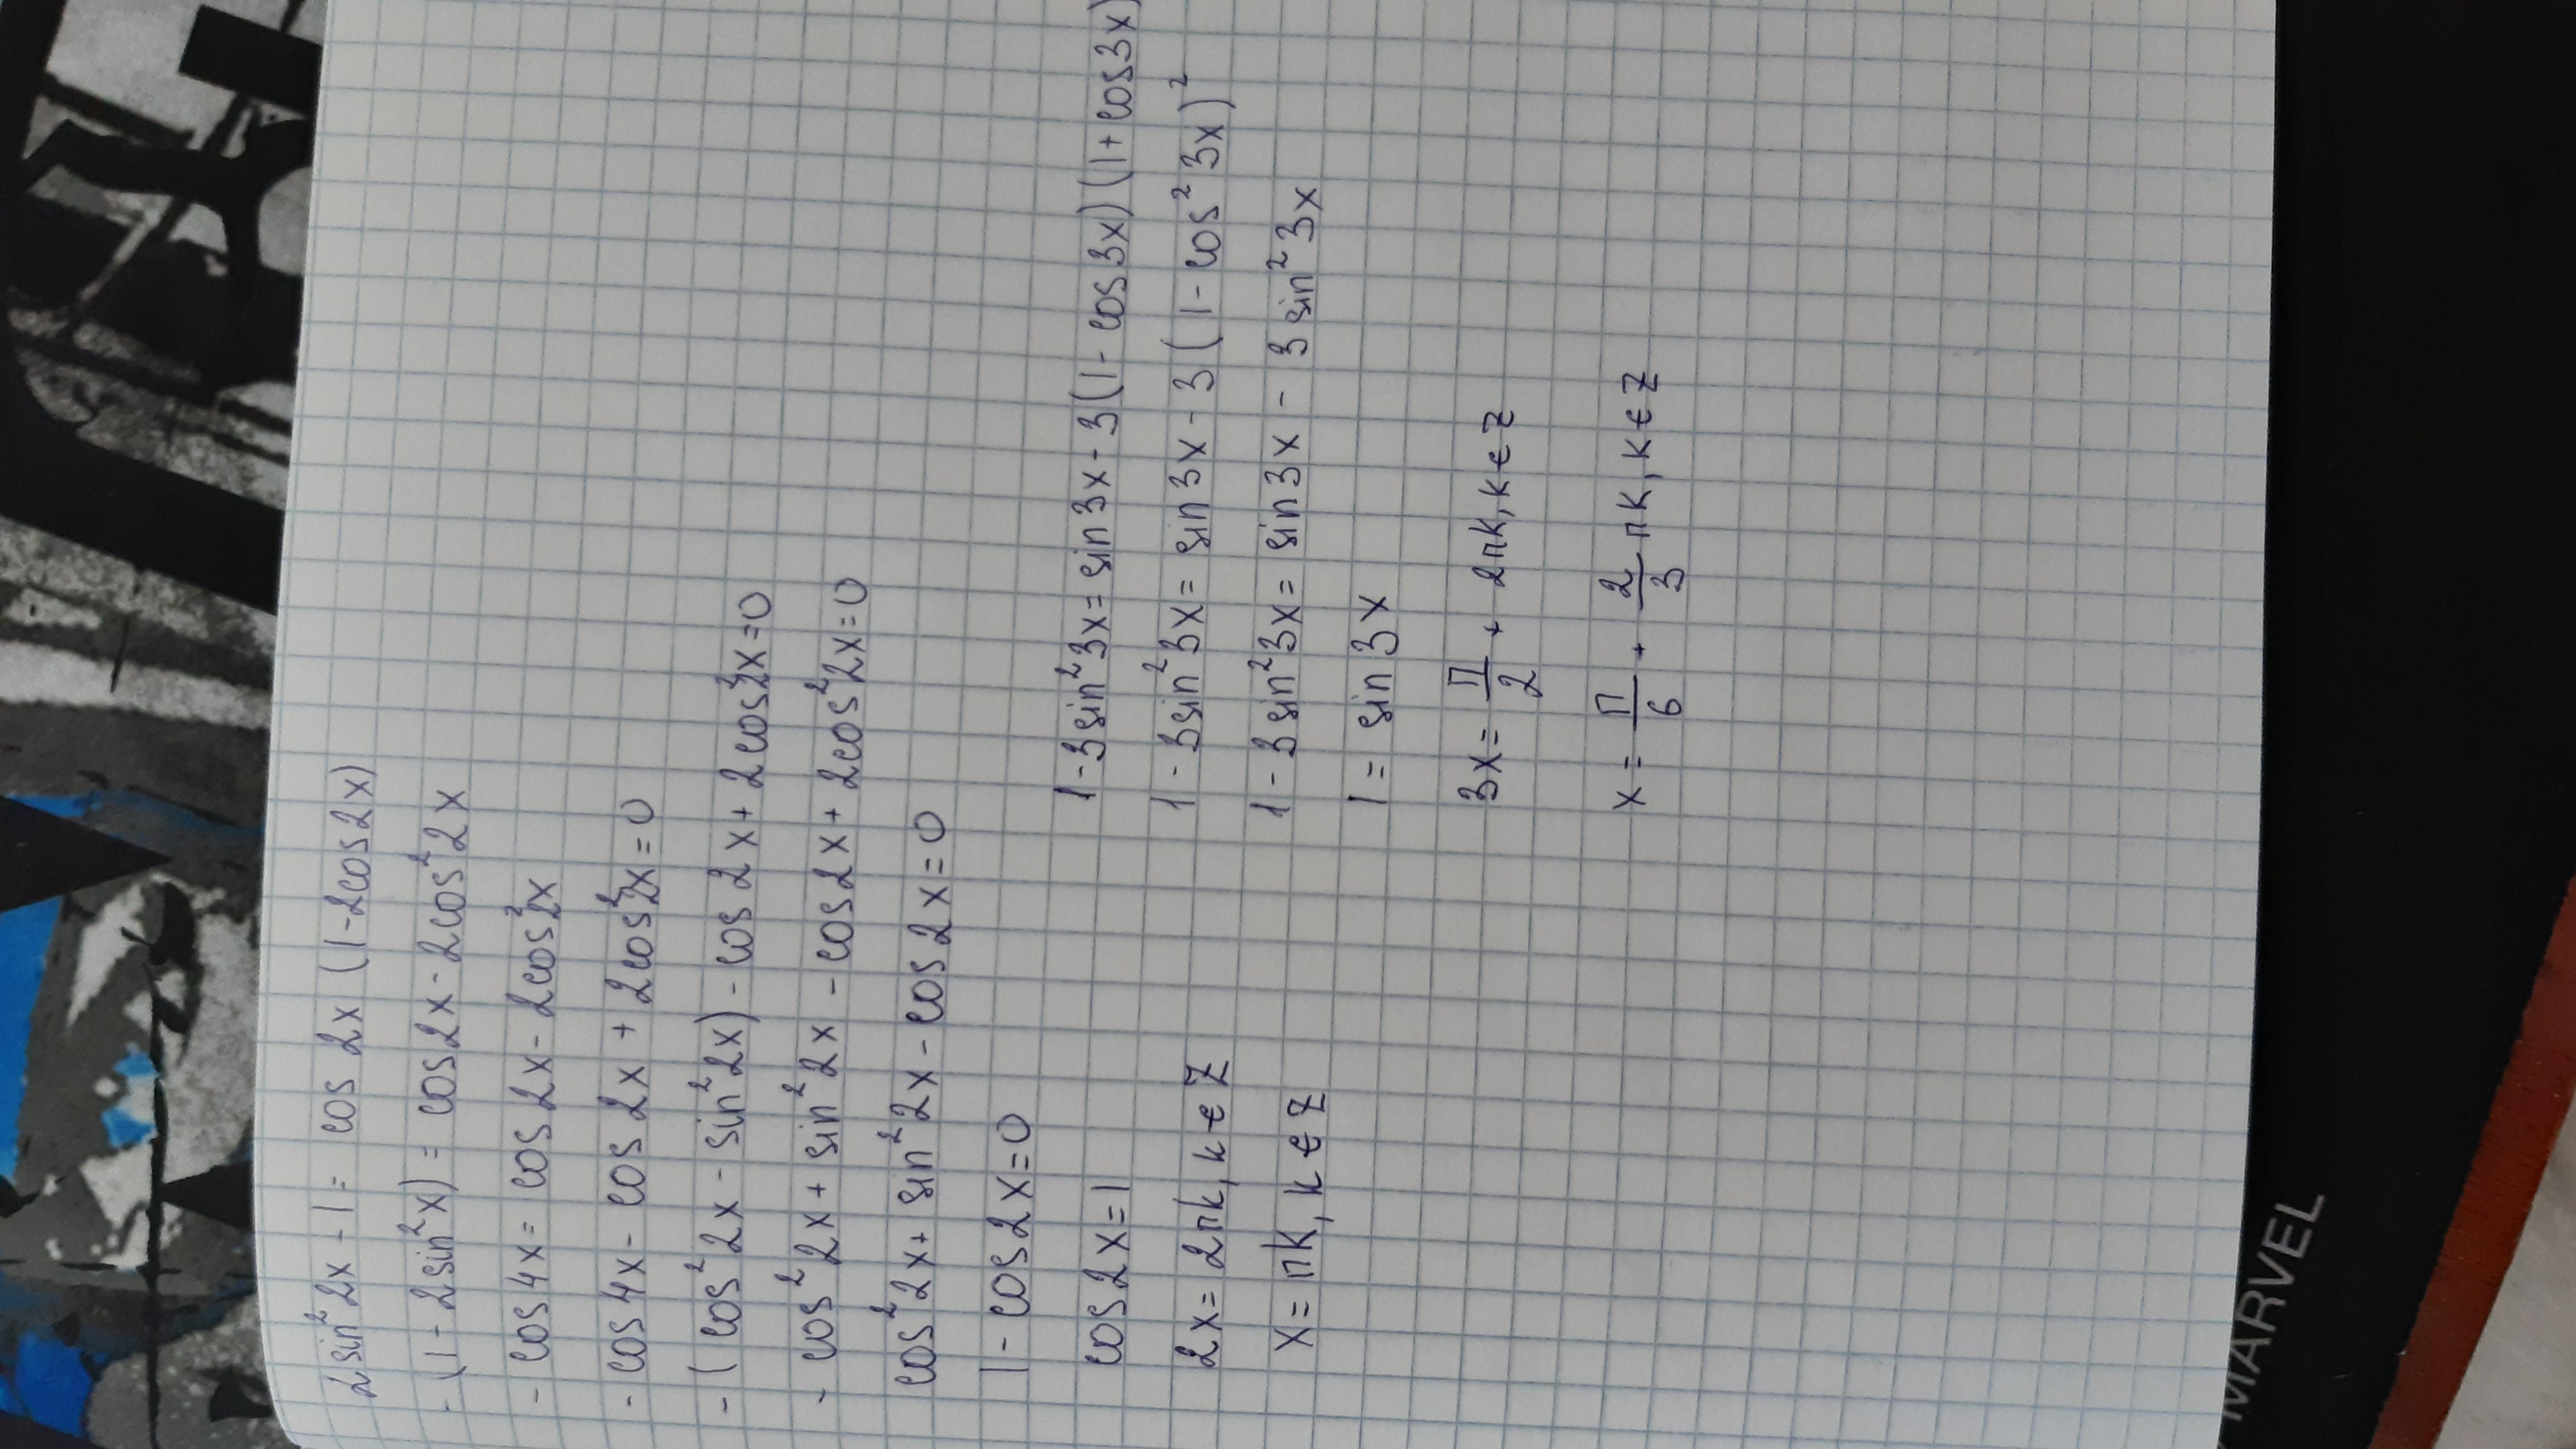 2sin²2x - 1 = cos 2x (1-2cos2x)
- (1 - 2sin²x) = cos2x - 2cos²2x
- cos4x = cos2x - 2cos²2x
- cos4x - cos2x + 2cos²2x = 0
- (cos²2x - sin²2x) - cos2x + 2cos²2x = 0
- cos²2x + sin²2x - cos2x + 2cos²2x = 0
cos²2x + sin²2x - cos2x = 0
1 - cos2x = 0
cos2x = 1
2x = 2πk, k ∈ Z
x = πk, k ∈ Z
1 - 3sin²3x = sin3x - 3(1 - cos3x)(1 + cos3x)
1 - 3sin²3x = sin3x - 3(1 - cos²3x)²
1 - 3sin²3x = sin3x - 3sin²3x
1 = sin3x
3x = π/2 + 2πk, k ∈ Z
x = π/6 + 2/3 πk, k ∈ Z
MARVEL